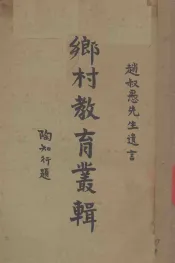 趙叔愚先生遺言
鄉村教育叢輯
陶知行題